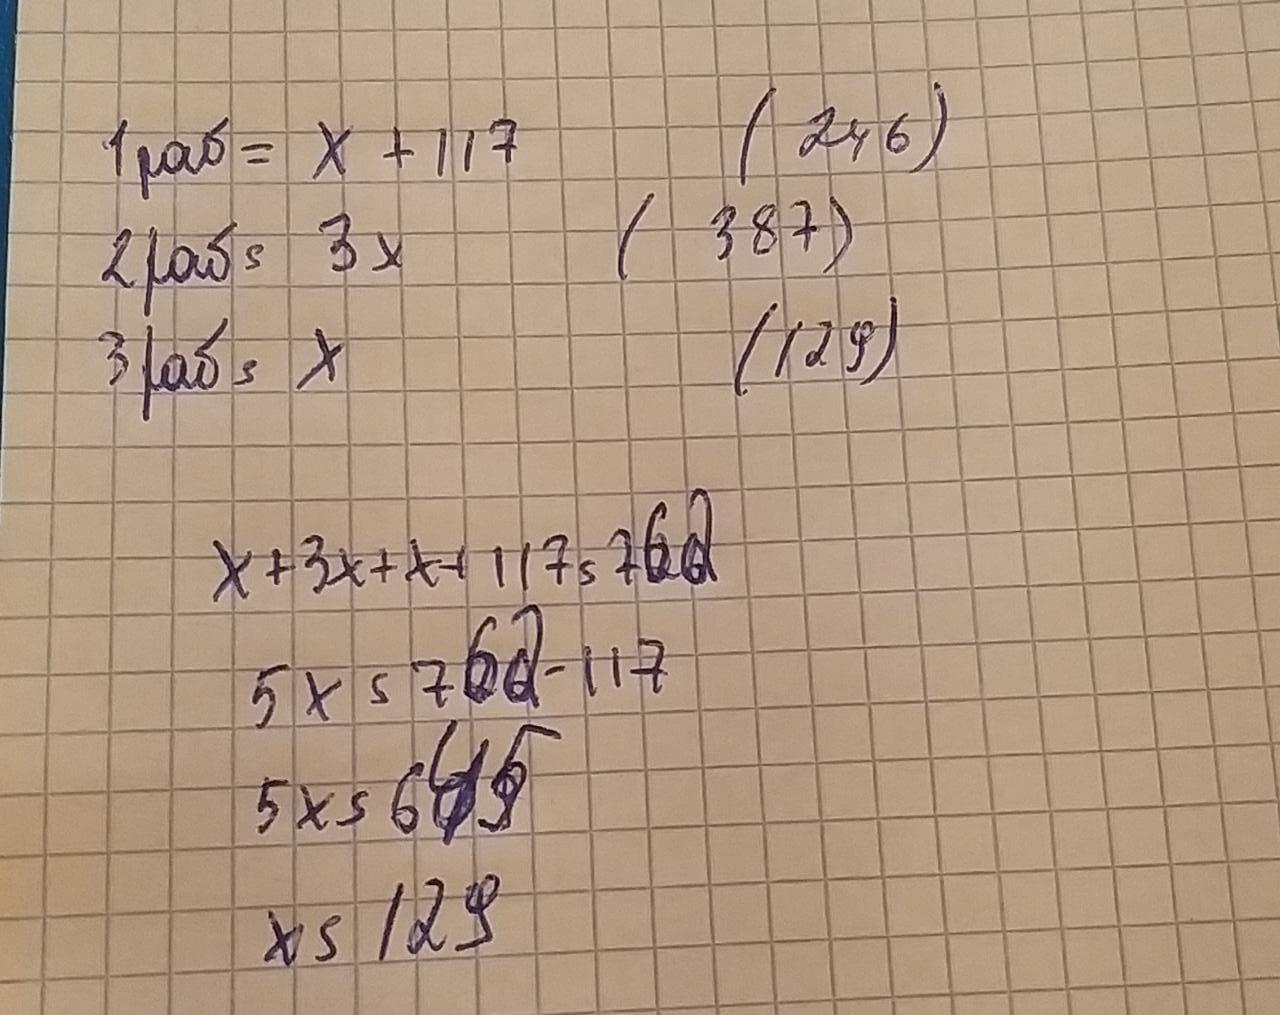 1 раб = x + 117 (246)
2 раб = 3x (387)
3 раб = x (129)
x + 3x + x + 117 = 762
5x = 762 - 117
5x = 645
x = 129